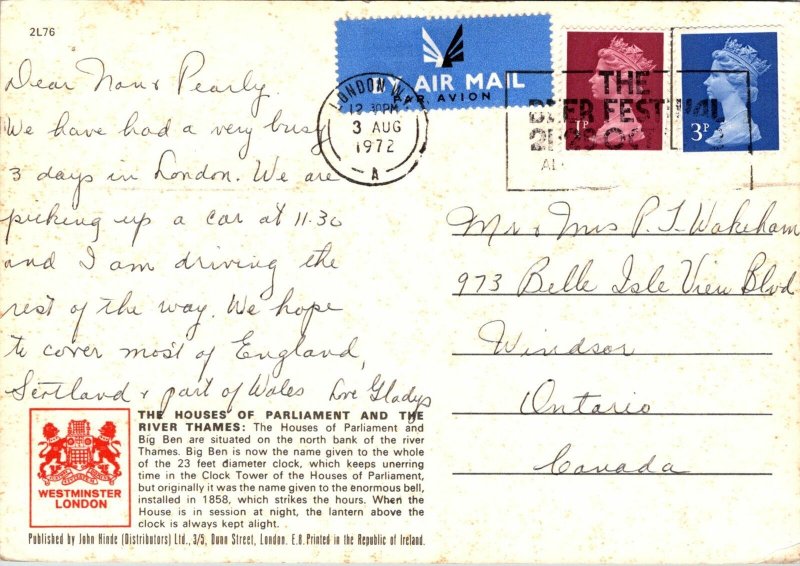 2L76
BY AIR MAIL
PAR AVION
LONDON
12.30PM
3 AUG
1972
A
THE
BEER FESTIVAL
1P
3P
Dear Nan & Pearly.
We have had a very busy
3 days in London. We are
picking up a car at 11.30
and I am driving the
rest of the way. We hope
to cover most of England,
Scotland & part of Wales Love Gladys
Mr & Mrs P. T. Wakeham
973 Belle Isle View Blvd
Windsor
Ontario
Canada
WESTMINSTER
LONDON
THE HOUSES OF PARLIAMENT AND THE
RIVER THAMES: The Houses of Parliament and
Big Ben are situated on the north bank of the river
Thames. Big Ben is now the name given to the whole
of the 23 feet diameter clock, which keeps unerring
time in the Clock Tower of the Houses of Parliament,
but originally it was the name given to the enormous bell,
installed in 1858, which strikes the hours. When the
House is in session at night, the lantern above the
clock is always kept alight.
Published by John Hinde (Distributors) Ltd., 3/5, Dunn Street, London. E.8. Printed in the Republic of Ireland.